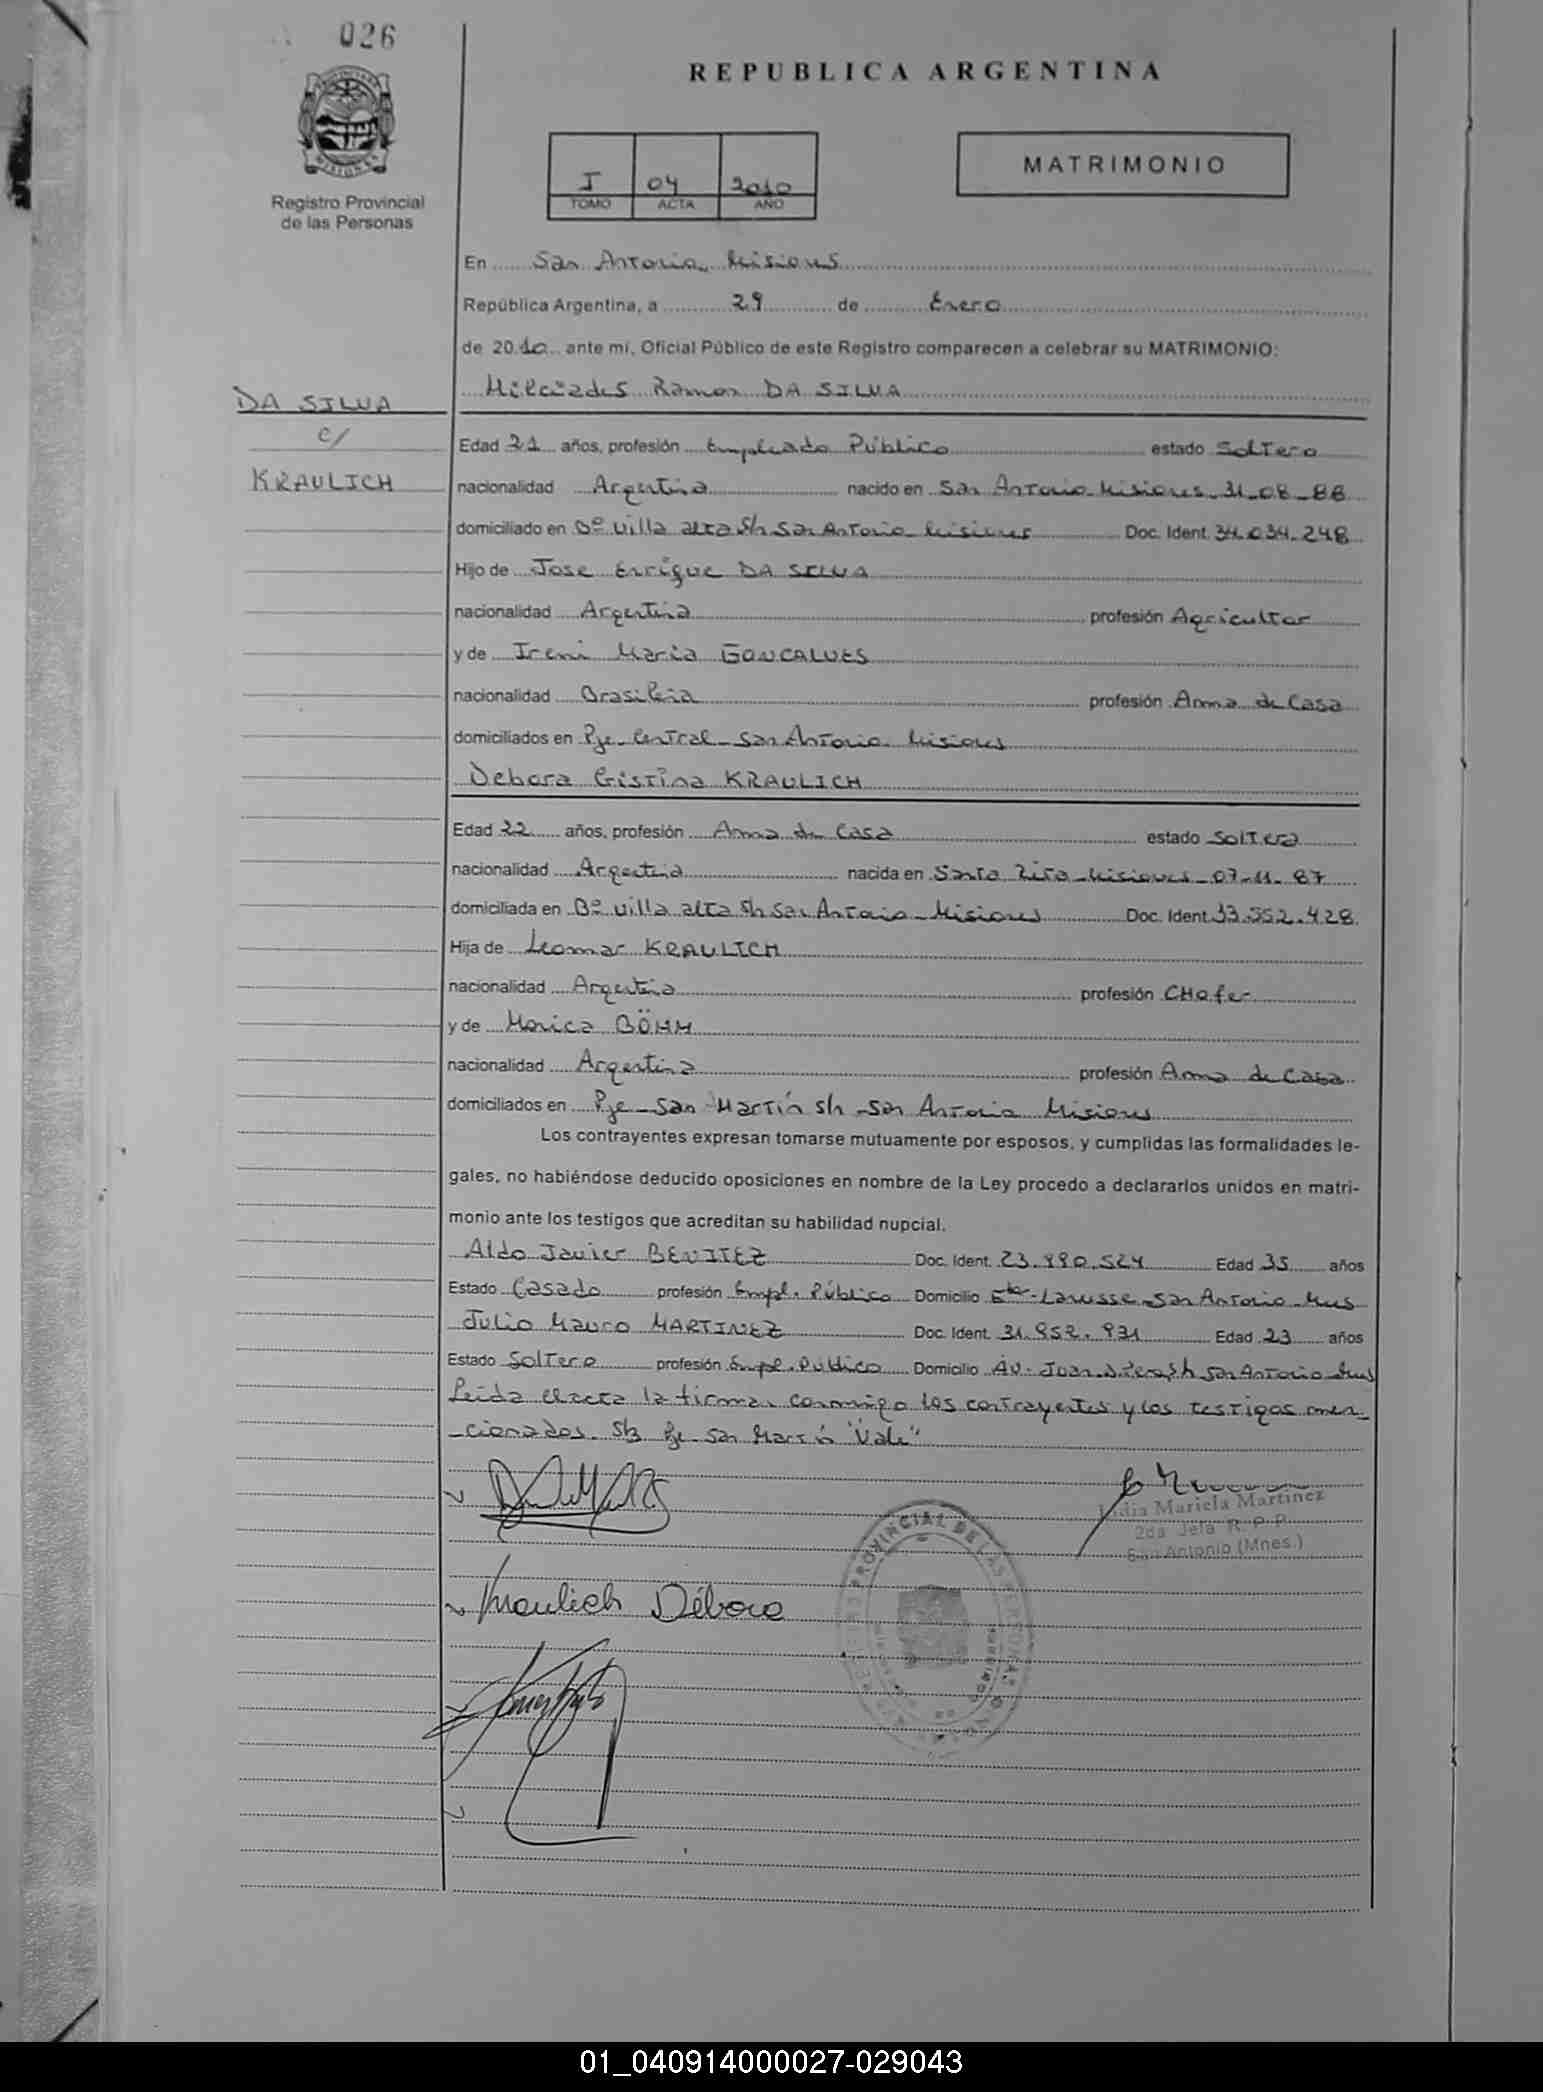 026
REPUBLICA ARGENTINA
Registro Provincial
de las Personas
I 04 2010
TOMO ACTA AÑO
MATRIMONIO
En San Antonio, Misiones
República Argentina, a 29 de Enero
de 2010 ante mí, Oficial Público de este Registro comparecen a celebrar su MATRIMONIO:
Milciades Ramon DA SILVA
DA SILVA
c/
KRAULICH
Edad 21 años, profesión Empleado Público estado Soltero
nacionalidad Argentina nacido en San Antonio Misiones 31-08-88
domiciliado en Bº Villa alta S/n San Antonio Misiones Doc. Ident. 34.034.248
Hijo de Jose Enrique DA SILVA
nacionalidad Argentina profesión Agricultor
y de Ireni Maria GONCALVES
nacionalidad Brasileña profesión Ama de Casa
domiciliados en Pje Central San Antonio Misiones
Debora Cristina KRAULICH
Edad 22 años, profesión Ama de Casa estado Soltera
nacionalidad Argentina nacida en Santa Rita Misiones 07-11-87
domiciliada en Bº Villa alta S/n San Antonio Misiones Doc. Ident. 33.552.428
Hija de Leomar KRAULICH
nacionalidad Argentina profesión CHofer
y de Monica BÖHM
nacionalidad Argentina profesión Ama de Casa
domiciliados en Pje San Martín S/n San Antonio Misiones
Los contrayentes expresan tomarse mutuamente por esposos, y cumplidas las formalidades le-
gales, no habiéndose deducido oposiciones en nombre de la Ley procedo a declararlos unidos en matri-
monio ante los testigos que acreditan su habilidad nupcial.
Aldo Javier BENITEZ Doc. Ident. 23.990.524 Edad 35 años
Estado Casado profesión Empl. Público Domicilio Lanusse San Antonio Mnes
Julio Mauro MARTINEZ Doc. Ident. 31.952.931 Edad 23 años
Estado Soltero profesión Empl. Público Domicilio Av. Juan D. Peron S/n San Antonio Mnes
Leida el acta la firman conmigo los contrayentes y los testigos men-
cionados. Pje San Martín "Vale"
Lidia Mariela Martinez
2da Jefa R. P. P.
San Antonio (Mnes.)
Kraulich Débora
01_040914000027-029043